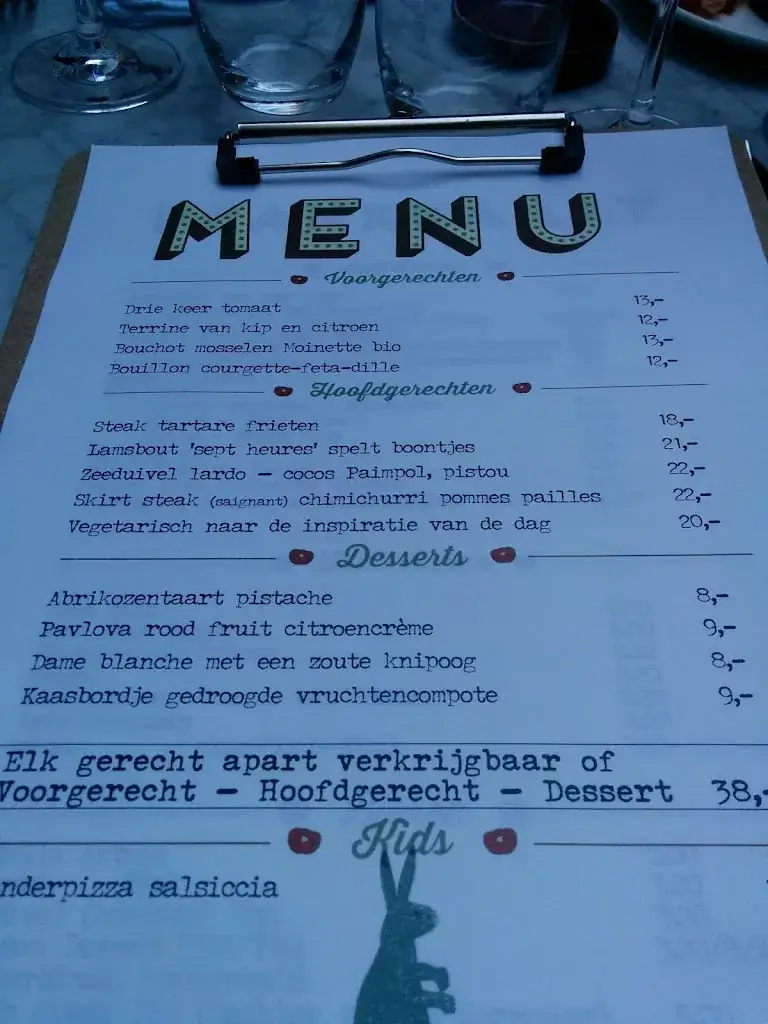 MENU
Voorgerechten
Drie keer tomaat 13,-
Terrine van kip en citroen 12,-
Bouchot mosselen Moinette bio 13,-
Bouillon courgette-feta-dille 12,-
Hoofdgerechten
Steak tartare frieten 18,-
Lamsbout 'sept heures' spelt boontjes 21,-
Zeeduivel lardo - cocos Paimpol, pistou 22,-
Skirt steak (saignant) chimichurri pommes pailles 22,-
Vegetarisch naar de inspiratie van de dag 20,-
Desserts
Abrikozentaart pistache 8,-
Pavlova rood fruit citroencrème 9,-
Dame blanche met een zoute knipoog 8,-
Kaasbordje gedroogde vruchtencompote 9,-
Elk gerecht apart verkrijgbaar of
Voorgerecht - Hoofdgerecht - Dessert 38,-
Kids
nderpizza salsiccia